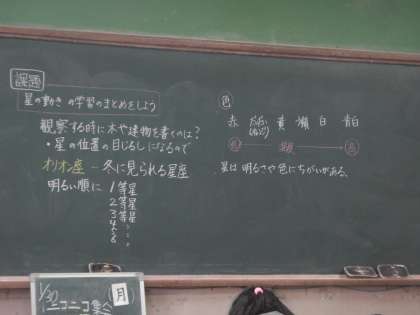 課題
星の動きの学習のまとめをしよう
観察する時に木や建物を書くのは?
・星の位置の目じるしになるので
オリオン座 - 冬に見られる星座
明るい順に 1等星
2等星
3等星
4
5
6
色
赤 だいだい 黄 白 青白
(オレンジ)
低 温度 高
星は 明るさや色にちがいがある。
1/30
ニコニコ集会
月